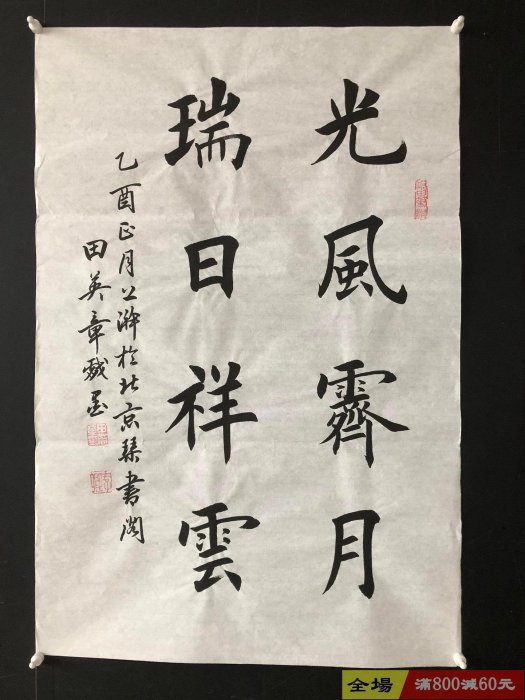 光風霽月
瑞日祥雲
乙酉正月上澣於北京琴書閣
田英章戲墨
全場
滿800減60元